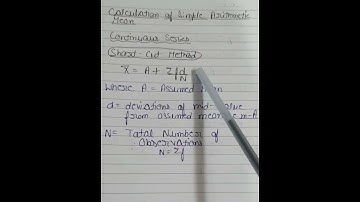 Calculation of Simple Arithmetic
Mean
Continuous Series
Short-Cut Method
X̄ = A + Σfd/N
Where A = Assumed Mean
d = deviations of mid-value
from assumed mean i.e m-A
N = Total Number of
Observations
N = Σf